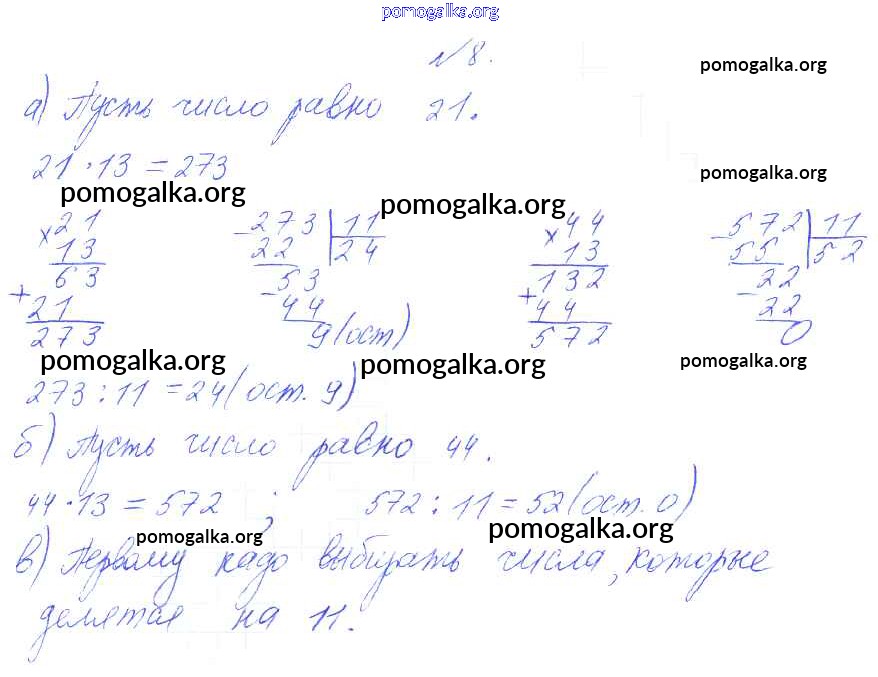 pomogalka.org
№8.
pomogalka.org
а) Пусть число равно 21.
21 · 13 = 273
pomogalka.org
pomogalka.org pomogalka.org
× 21 − 273 | 11 × 44 − 572 | 11
13 22 24 13 55 52
63 53 132 22
+ 21 − 44 + 44 − 22
273 9 (ост) 572 0
pomogalka.org pomogalka.org pomogalka.org
273 : 11 = 24 (ост. 9)
б) Пусть число равно 44.
44 · 13 = 572 ; 572 : 11 = 52 (ост. 0)
pomogalka.org pomogalka.org
в) Первому надо выбирать числа, которые
делятся на 11.